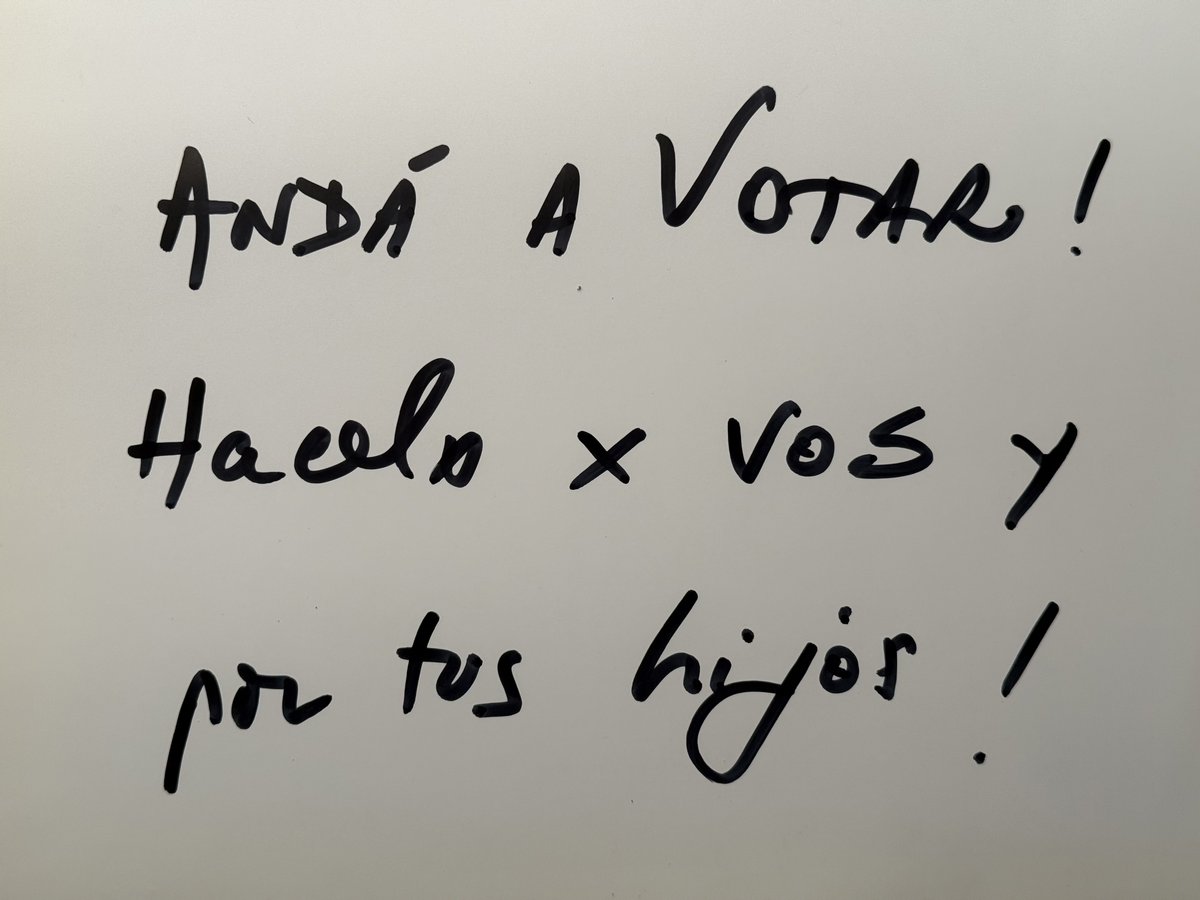 ANDÁ A VOTAR!
Hacelo x vos y
por tus hijos!